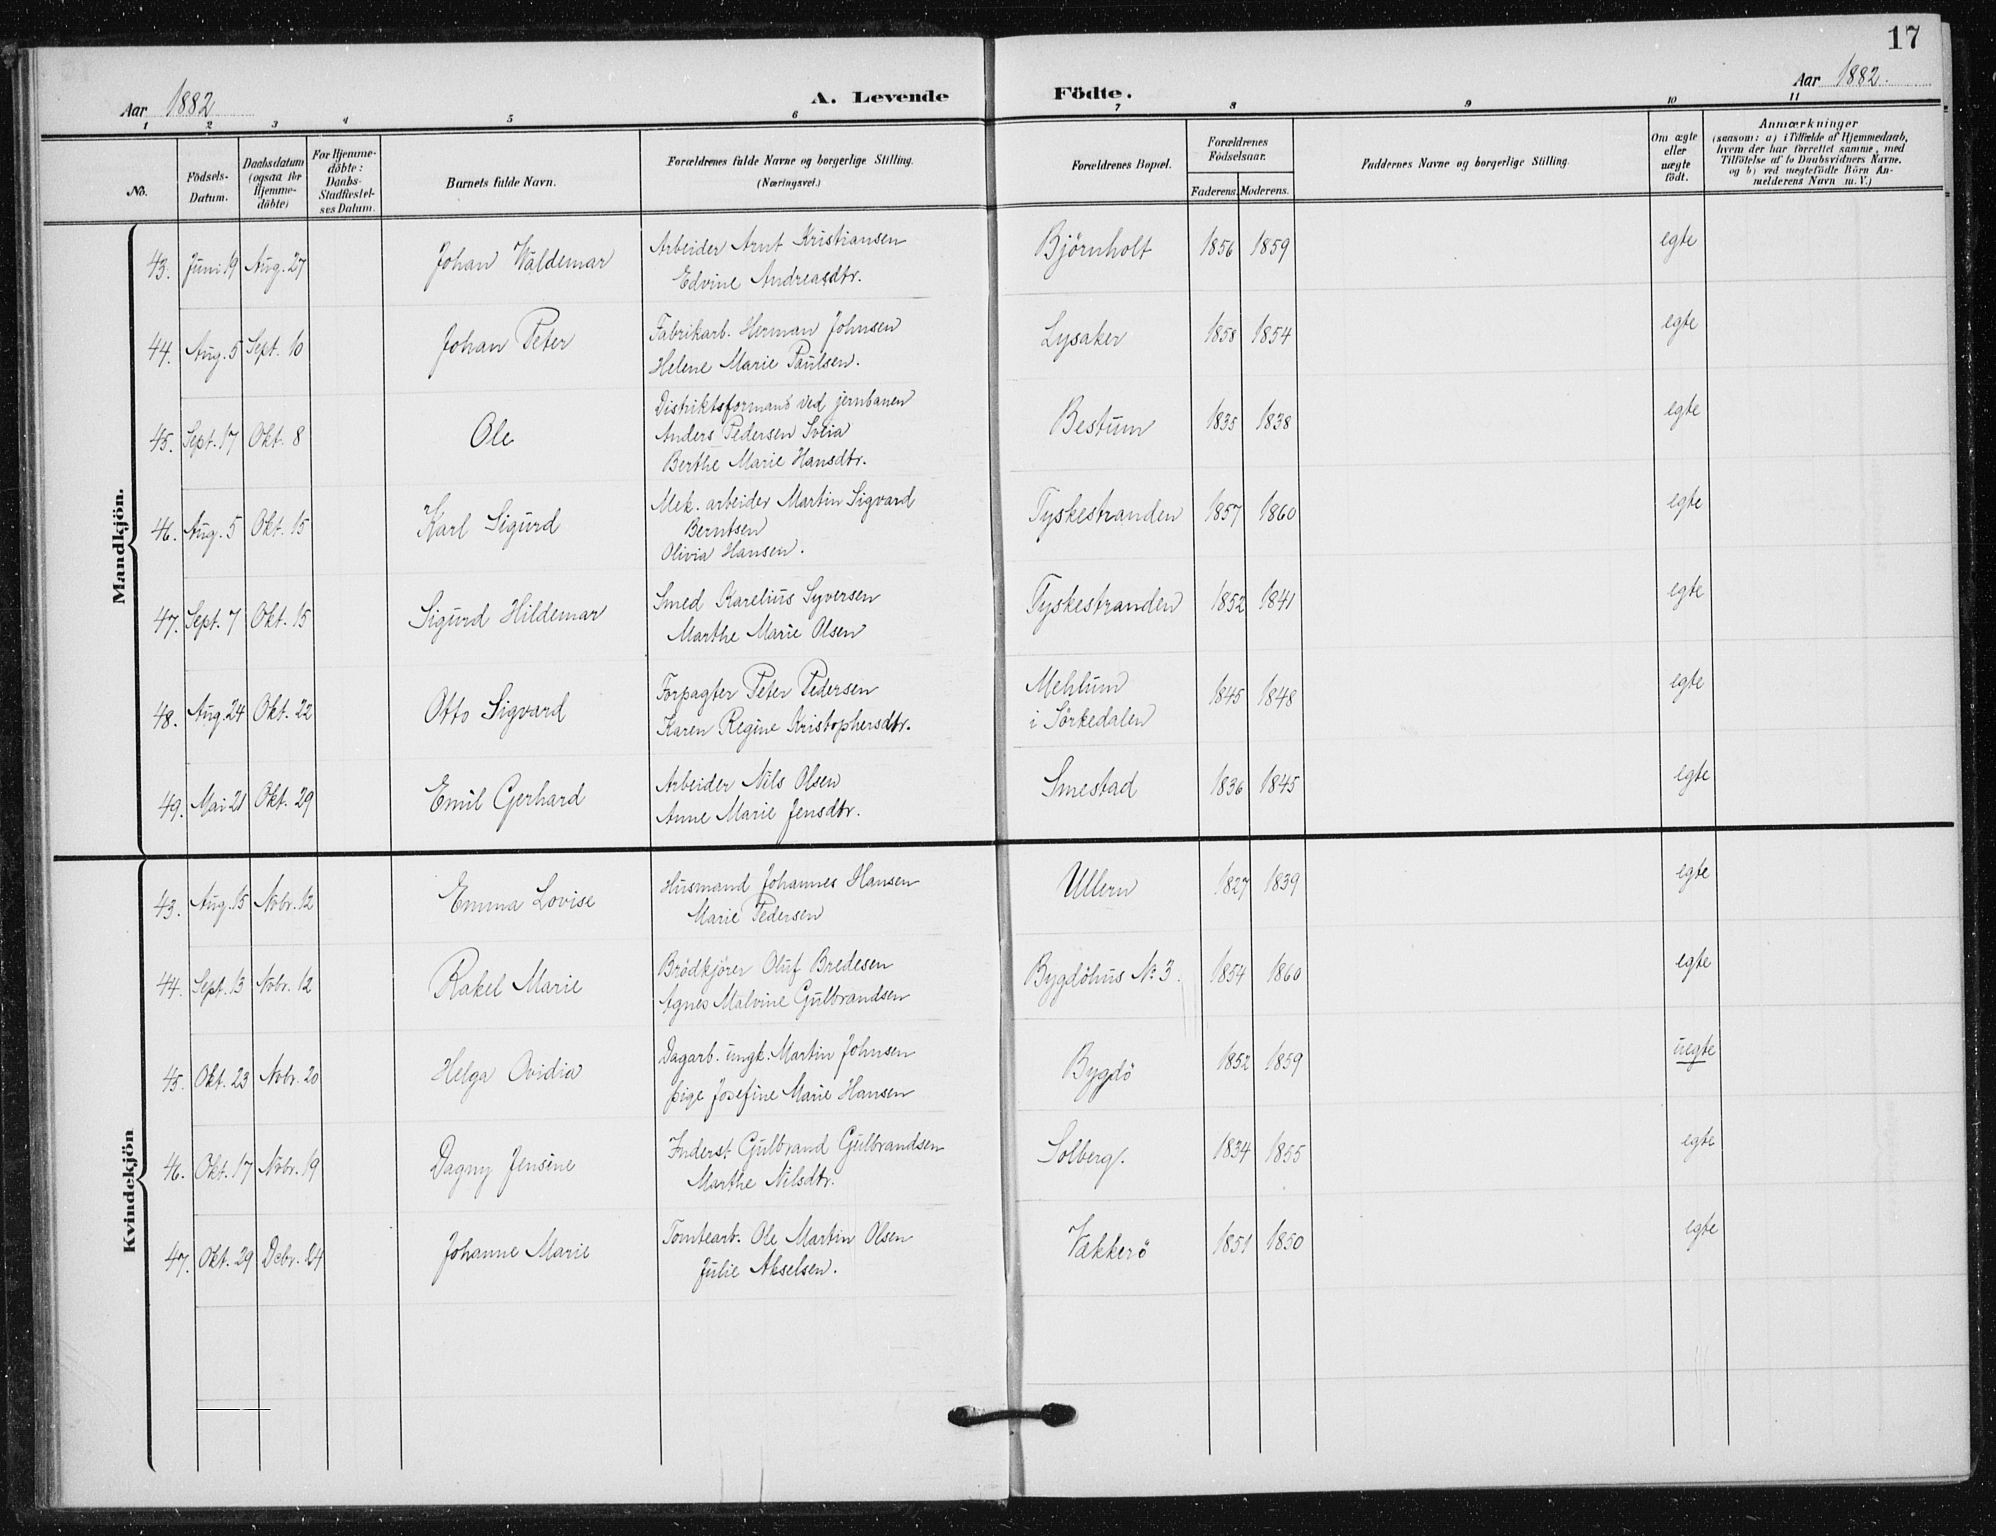 17
Aar 1882
A. Levende
Födte.
Aar 1882.
1 2 3 4 5 6 7 8 9 10 11
No.
Födsels-Datum.
Daabsdatum (ogsaa for Hjemme-döbte)
For Hjemme-döbte: Daabs-Stadfæstel-ses Datum.
Barnets fulde Navn.
Forældrenes fulde Navne og borgerlige Stilling.
(Næringsvei.)
Forældrenes Bopæl.
Forældrenes Födselsaar.
Faderens. Moderens.
Faddernes Navne og borgerlige Stilling.
Om ægte eller uægte födt.
Anmærkninger
(saasom: a) i Tilfælde af Hjemmedaab,
hvem der har forrettet samme, med
Tilföielse af to Daabsvidners Navne,
og b) ved uægtefödte Börn An-
melderens Navn m. V.)
Mandkjön.
43. Juni 19 Aug. 27 Johan Waldemar Arbeider Arnt Kristiansen Bjørnholt 1856 1859 egte
Edvine Andreasdtr.
44. Aug. 5 Sept. 10 Johan Peter Fabrikarb. Herman Johnsen Lysaker 1858 1854 egte
Helene Marie Paulsen.
45. Sept. 17 Okt. 8 Ole Distriktsformand ved jernbanen Bestum 1835 1838 egte
Anders Pedersen Sveia
Berthe Marie Hansdtr.
46. Aug. 5 Okt. 15 Karl Sigurd Mek. arbeider Martin Sigvard Tyskestranden 1857 1860 egte
Berntsen
Olivia Hansen.
47. Sept. 7 Okt. 15 Sigurd Hildemar Smed Karelius Syversen Tyskestranden 1852 1841 egte
Marthe Marie Olsen
48. Aug. 24 Okt. 22 Otto Sigvard Forpagter Peter Pedersen Mehlum 1845 1848 egte
Karen Regine Kristophersdtr. i Sörkedalen
49. Mai 21 Okt. 29 Emil Gerhard Arbeider Nils Olsen Smestad 1836 1845 egte
Anne Marie Jensdtr.
Kvindekjön
43. Aug. 15 Nobr. 12 Emma Lovise Husmand Johannes Hansen Ullern 1827 1839 egte
Marie Pedersen
44. Sept. 13 Nobr. 12 Rakel Marie Brödkjörer Oluf Bredesen Bygdöhus No 3. 1854 1860 egte
Agnes Malvine Gulbrandsen
45. Okt. 23 Nobr. 20 Helga Ovidia Dagarb. ungk. Martin Johnsen Bygdö 1852 1859 uegte
pige Josefine Marie Hansen
46. Okt. 17 Nobr. 19 Dagny Jensine Inderst Gulbrand Gulbrandsen Solberg. 1834 1855 egte
Marthe Nilsdtr.
47. Okt. 29 Debr. 24 Johanne Marie Tomtearb. Ole Martin Olsen Vækkerö 1851 1850 egte
Julie Akselsen.